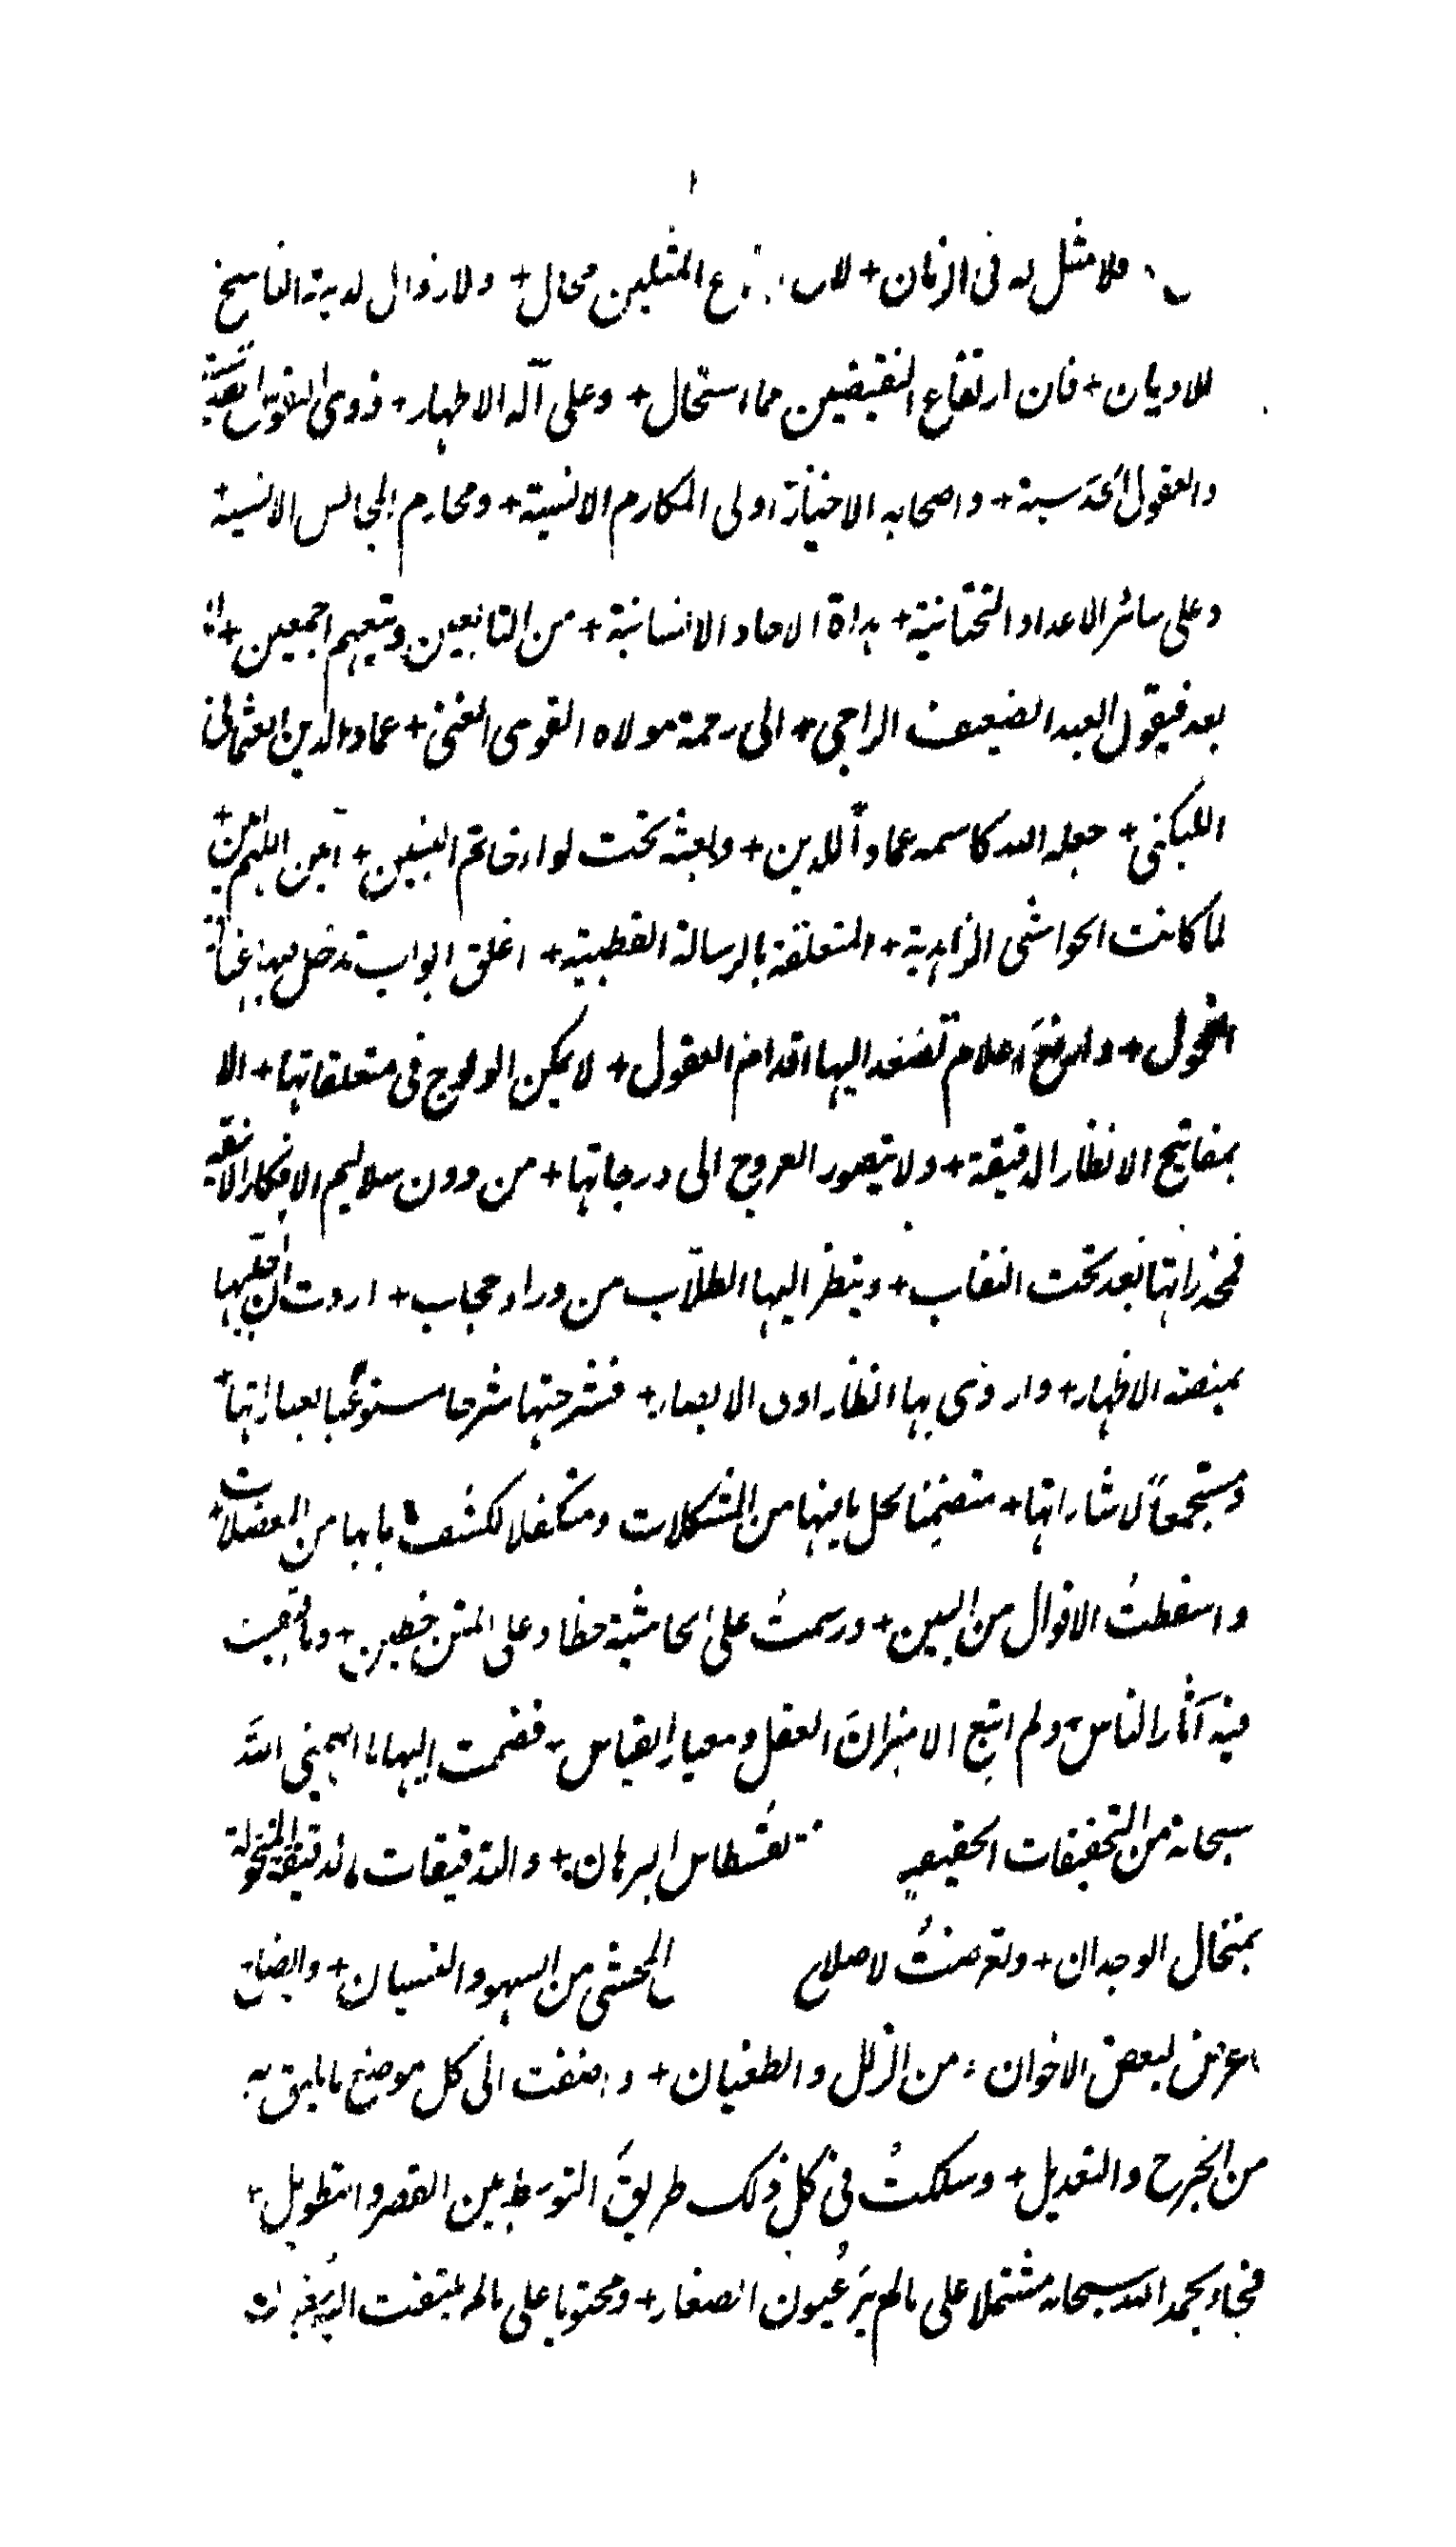 فلا مثل له فى الزمان + لان ع المثلين محال + ولا زوال لدينه الناسخ
للاديان + فان ارتفاع النقيضين مما استحال + وعلى آله الاطهار + ذوى النفوس القدسية
والعقول الحدسية + واصحابه الاخيار اولى المكارم الانسية + ومحارم المجالس الانسية +
وعلى سائر الاعداد التحتانية + هداة الاحاد الانسانية + من التابعين وتبعهم اجمعين + اما
بعد فيقول العبد الضعيف الراجى + الى رحمة مولاه القوى الغنى + عماد الدين العثمانى
اللبكنى + جعله الله كاسمه عماداً للدين + وبعثه تحت لواء خاتم النبيين + آمين اللهم آمين +
لما كانت الحواشى الزاهدية + المتعلقة بالرسالة القطبية + اغلق ابواب تدخل فيها
الفحول + وارفع اعلام تصعد اليها اقدام العقول + لا يمكن الولوج فى متعلقاتها + الا
بمفاتيح الانظار الدقيقة + ولا يتصور العروج الى درجاتها + من دون سلاليم الافكار الانيقة
فمخدراتها بعد تحت النقاب + وينظر اليها الطلاب من وراء حجاب + اردت ان اجليها
بمنصة الاظهار + وار وى بها انظار اولى الابصار + فشرحتها شرحا مستوعبا لعباراتها +
ومستجمعاً لاشاراتها + متضمنا لحل ما فيها من المشكلات ومتكفلا لكشف ما بها من المعضلات +
واسقطتُ الاقوال من البين + ورسمتُ على الحاشية خطا وعلى المتن خطين + وما تتبعت
فيه آثار الناس + ولم اتبع الا ميزانَ العقل ومعيار القياس + فضممت اليها ما الهمنى اللهَ
سبحانه من التحقيقات الحقيقية بقُسطاس البرهان + والتدقيقات الدقيقة المنخولة
بمنخال الوجدان + وتعرضتُ لاصلاح المحشى من السهو والنسيان + وايضاح
ما عرض لبعض الاخوان + من الزلل والطغيان + واضفت الى كل موضع ما يليق به
من الجرح والتعديل + وسلكتُ فى كل ذلك طريقَ التوسط بين القصر والتطويل +
فجاء بحمد الله سبحانه مشتملا على ما لم يرَ عُيون الصغار + ومحتويا على ما لم يلتفت اليه